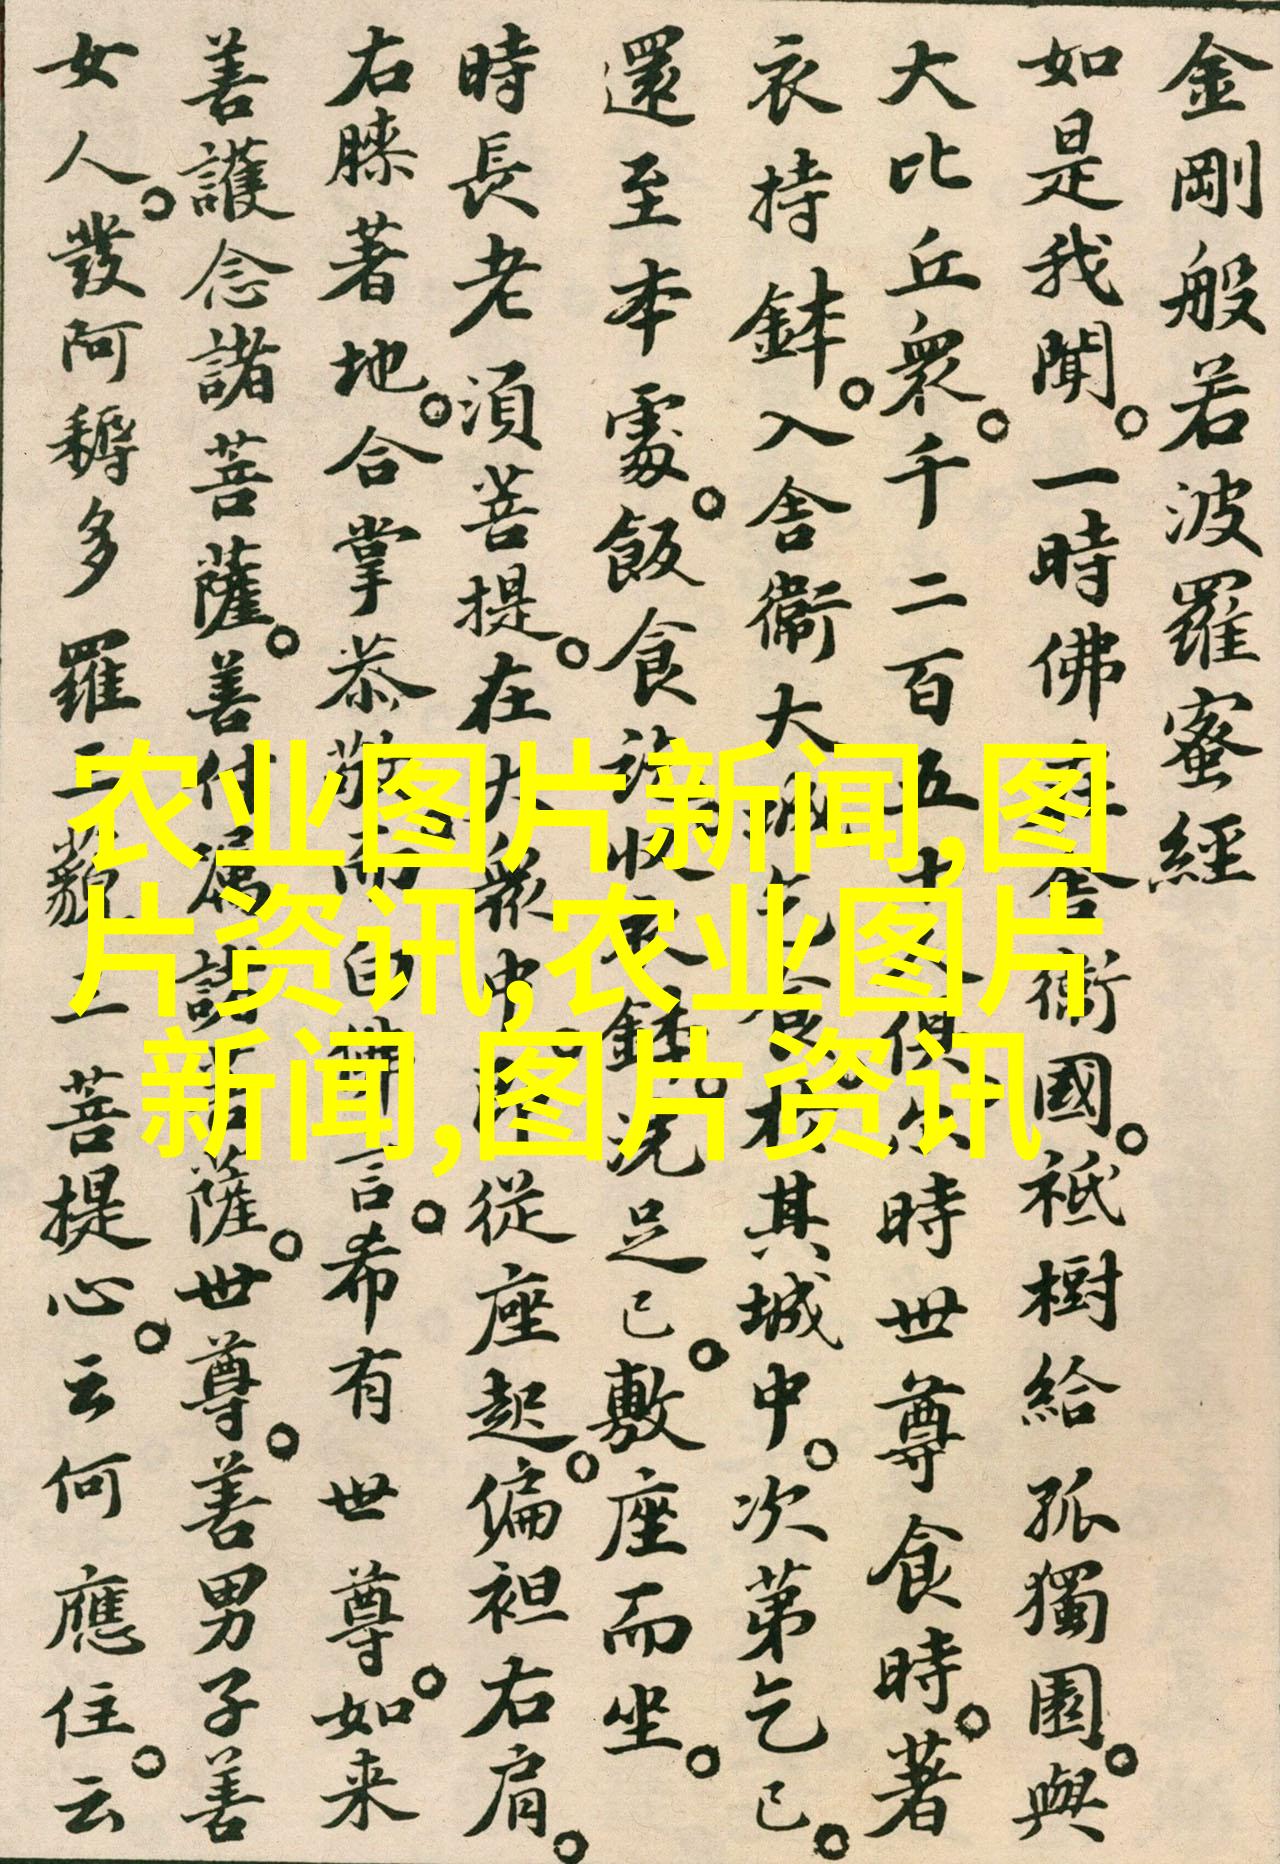 金剛般若波羅蜜經
如是我聞。一時佛在舍衞國。祇樹給孤獨園。與
大比丘衆。千二百五十人俱尔時世尊食時。著
衣持鉢。入舍衞大城乞食。於其城中。次第乞已。
還至本處。飯食訖。收衣鉢。洗足已。敷座而坐。
時長老須菩提。在大衆中。即從座起。偏袒右肩。
右膝著地。合掌恭敬而白佛言。希有世尊。如来
善護念諸菩薩。善付属諸菩薩。世尊。善男子善
女人。發阿耨多羅三藐三菩提心。云何應住。云
农业图片新闻,图
片资讯,农业图片
新闻,图片资讯